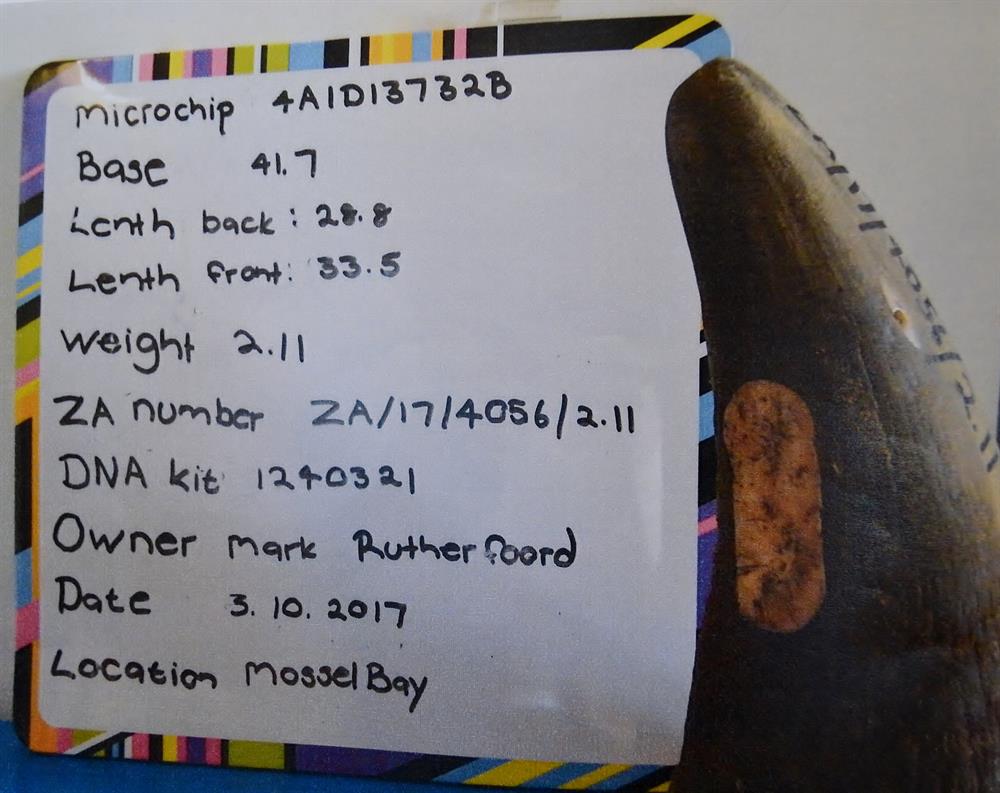 microchip 4A1D13732B
Base 41.7
Lenth back: 28.8
Lenth front: 33.5
weight 2.11
ZA number ZA/17/4056/2.11
DNA kit 1240321
Owner mark Rutherfoord
Date 3.10.2017
Location Mossel Bay
ZA/17/4056/2.11